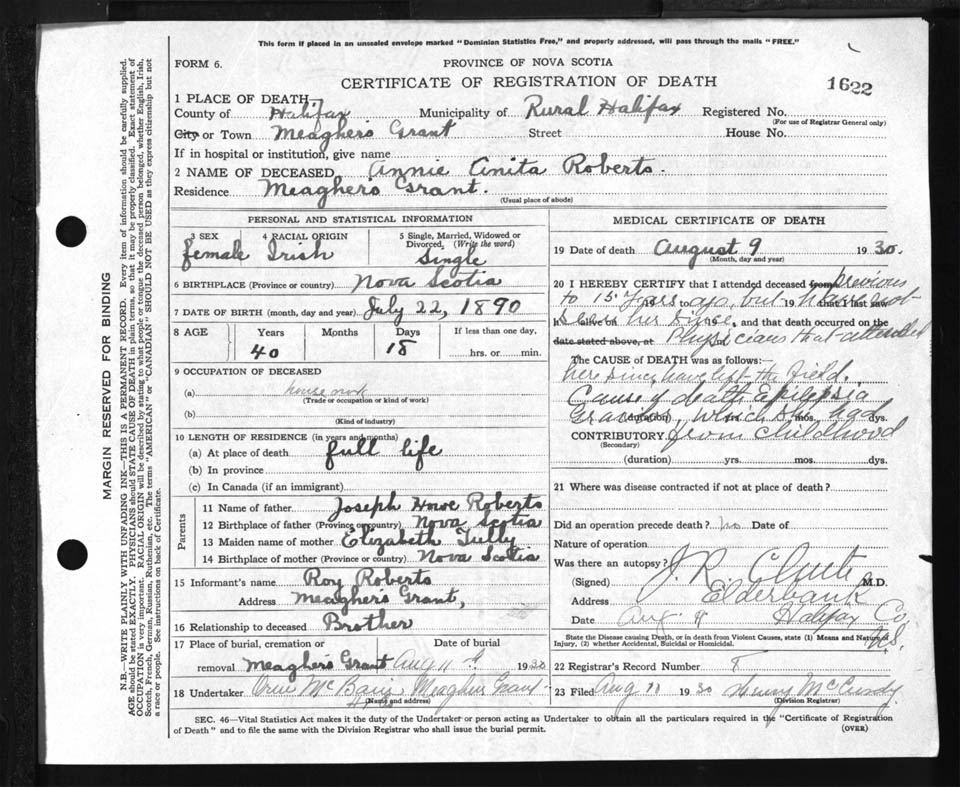 This form if placed in an unsealed envelope marked "Dominion Statistics Free," and properly addressed, will pass through the mails "FREE."
FORM 6.
PROVINCE OF NOVA SCOTIA
CERTIFICATE OF REGISTRATION OF DEATH
1622
1 PLACE OF DEATH,
County of Halifax Municipality of Rural Halifax Registered No.
(For use of Registrar General only)
City or Town Meagher's Grant Street House No.
If in hospital or institution, give name
2 NAME OF DECEASED Annie Anita Roberts.
Residence Meagher's Grant.
(Usual place of abode)
PERSONAL AND STATISTICAL INFORMATION
3 SEX 4 RACIAL ORIGIN 5 Single, Married, Widowed or Divorced, (Write the word)
female Irish Single
6 BIRTHPLACE (Province or country) Nova Scotia
7 DATE OF BIRTH (month, day and year) July 22, 1890
8 AGE Years Months Days If less than one day,
40 18 hrs. or min.
9 OCCUPATION OF DECEASED
(a) house work
(Trade or occupation or kind of work)
(b)
(Kind of industry)
10 LENGTH OF RESIDENCE (in years and months)
(a) At place of death full life
(b) In province
(c) In Canada (if an immigrant)
Parents
11 Name of father Joseph Howe Roberts
12 Birthplace of father (Province or country) Nova Scotia
13 Maiden name of mother Elizabeth Tully
14 Birthplace of mother (Province or country) Nova Scotia
15 Informant's name Roy Roberts
Address Meagher's Grant,
16 Relationship to deceased Brother
17 Place of burial, cremation or Date of burial
removal Meagher's Grant Aug 11 1930
18 Undertaker Meaghers Grant
(Name and address)
MEDICAL CERTIFICATE OF DEATH
19 Date of death August 9 1930.
(Month, day and year)
20 I HEREBY CERTIFY that I attended deceased from previous
to 15 years ago, but 19 that I last saw have not
h alive on seen her since, and that death occurred on the
date stated above, at Physicians that attended
The CAUSE of DEATH was as follows:
her since have left the field.
Cause of death Epilepsia
(duration) which she had mos. dys.
CONTRIBUTORY from childhood
(Secondary)
(duration) yrs. mos. dys.
21 Where was disease contracted if not at place of death?
Did an operation precede death? no Date of
Nature of operation
Was there an autopsy?
(Signed) J. R. M.D.
Address Elderbank
Date Aug 9 Halifax Co, N.S.
State the Disease causing Death, or in death from Violent Causes, state (1) Means and Nature of Injury, (2) whether Accidental, Suicidal or Homicidal.
22 Registrar's Record Number
23 Filed Aug 11 1930 Henry McCurdy
(Division Registrar)
SEC. 46—Vital Statistics Act makes it the duty of the Undertaker or person acting as Undertaker to obtain all the particulars required in the "Certificate of Registration
of Death" and to file the same with the Division Registrar who shall issue the burial permit.
(OVER)
MARGIN RESERVED FOR BINDING
N.B.—WRITE PLAINLY WITH UNFADING INK—THIS IS A PERMANENT RECORD. Every item of information should be carefully supplied.
AGE should be stated EXACTLY. PHYSICIANS should STATE CAUSE OF DEATH in plain terms, so that it may be properly classified. Exact statement of
OCCUPATION is very important. RACIAL ORIGIN will be described by stating to what people or tongue the deceased person belonged, whether English, Irish,
Scotch, French, German, Russian, Ruthenian, etc. The terms "AMERICAN" or "CANADIAN" SHOULD NOT BE USED as they express citizenship but not
a race or people. See instructions on back of Certificate.